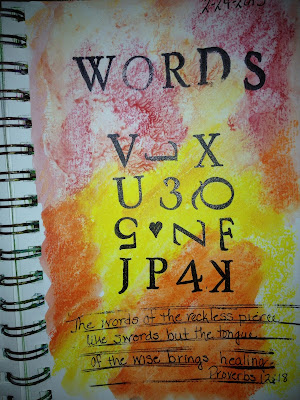 WORDS
V J X
U 3 Q
5 ♥ Z F
J P 4 K
The words of the reckless pierce
like swords but the tongue
of the wise brings healing.
Proverbs 12:18